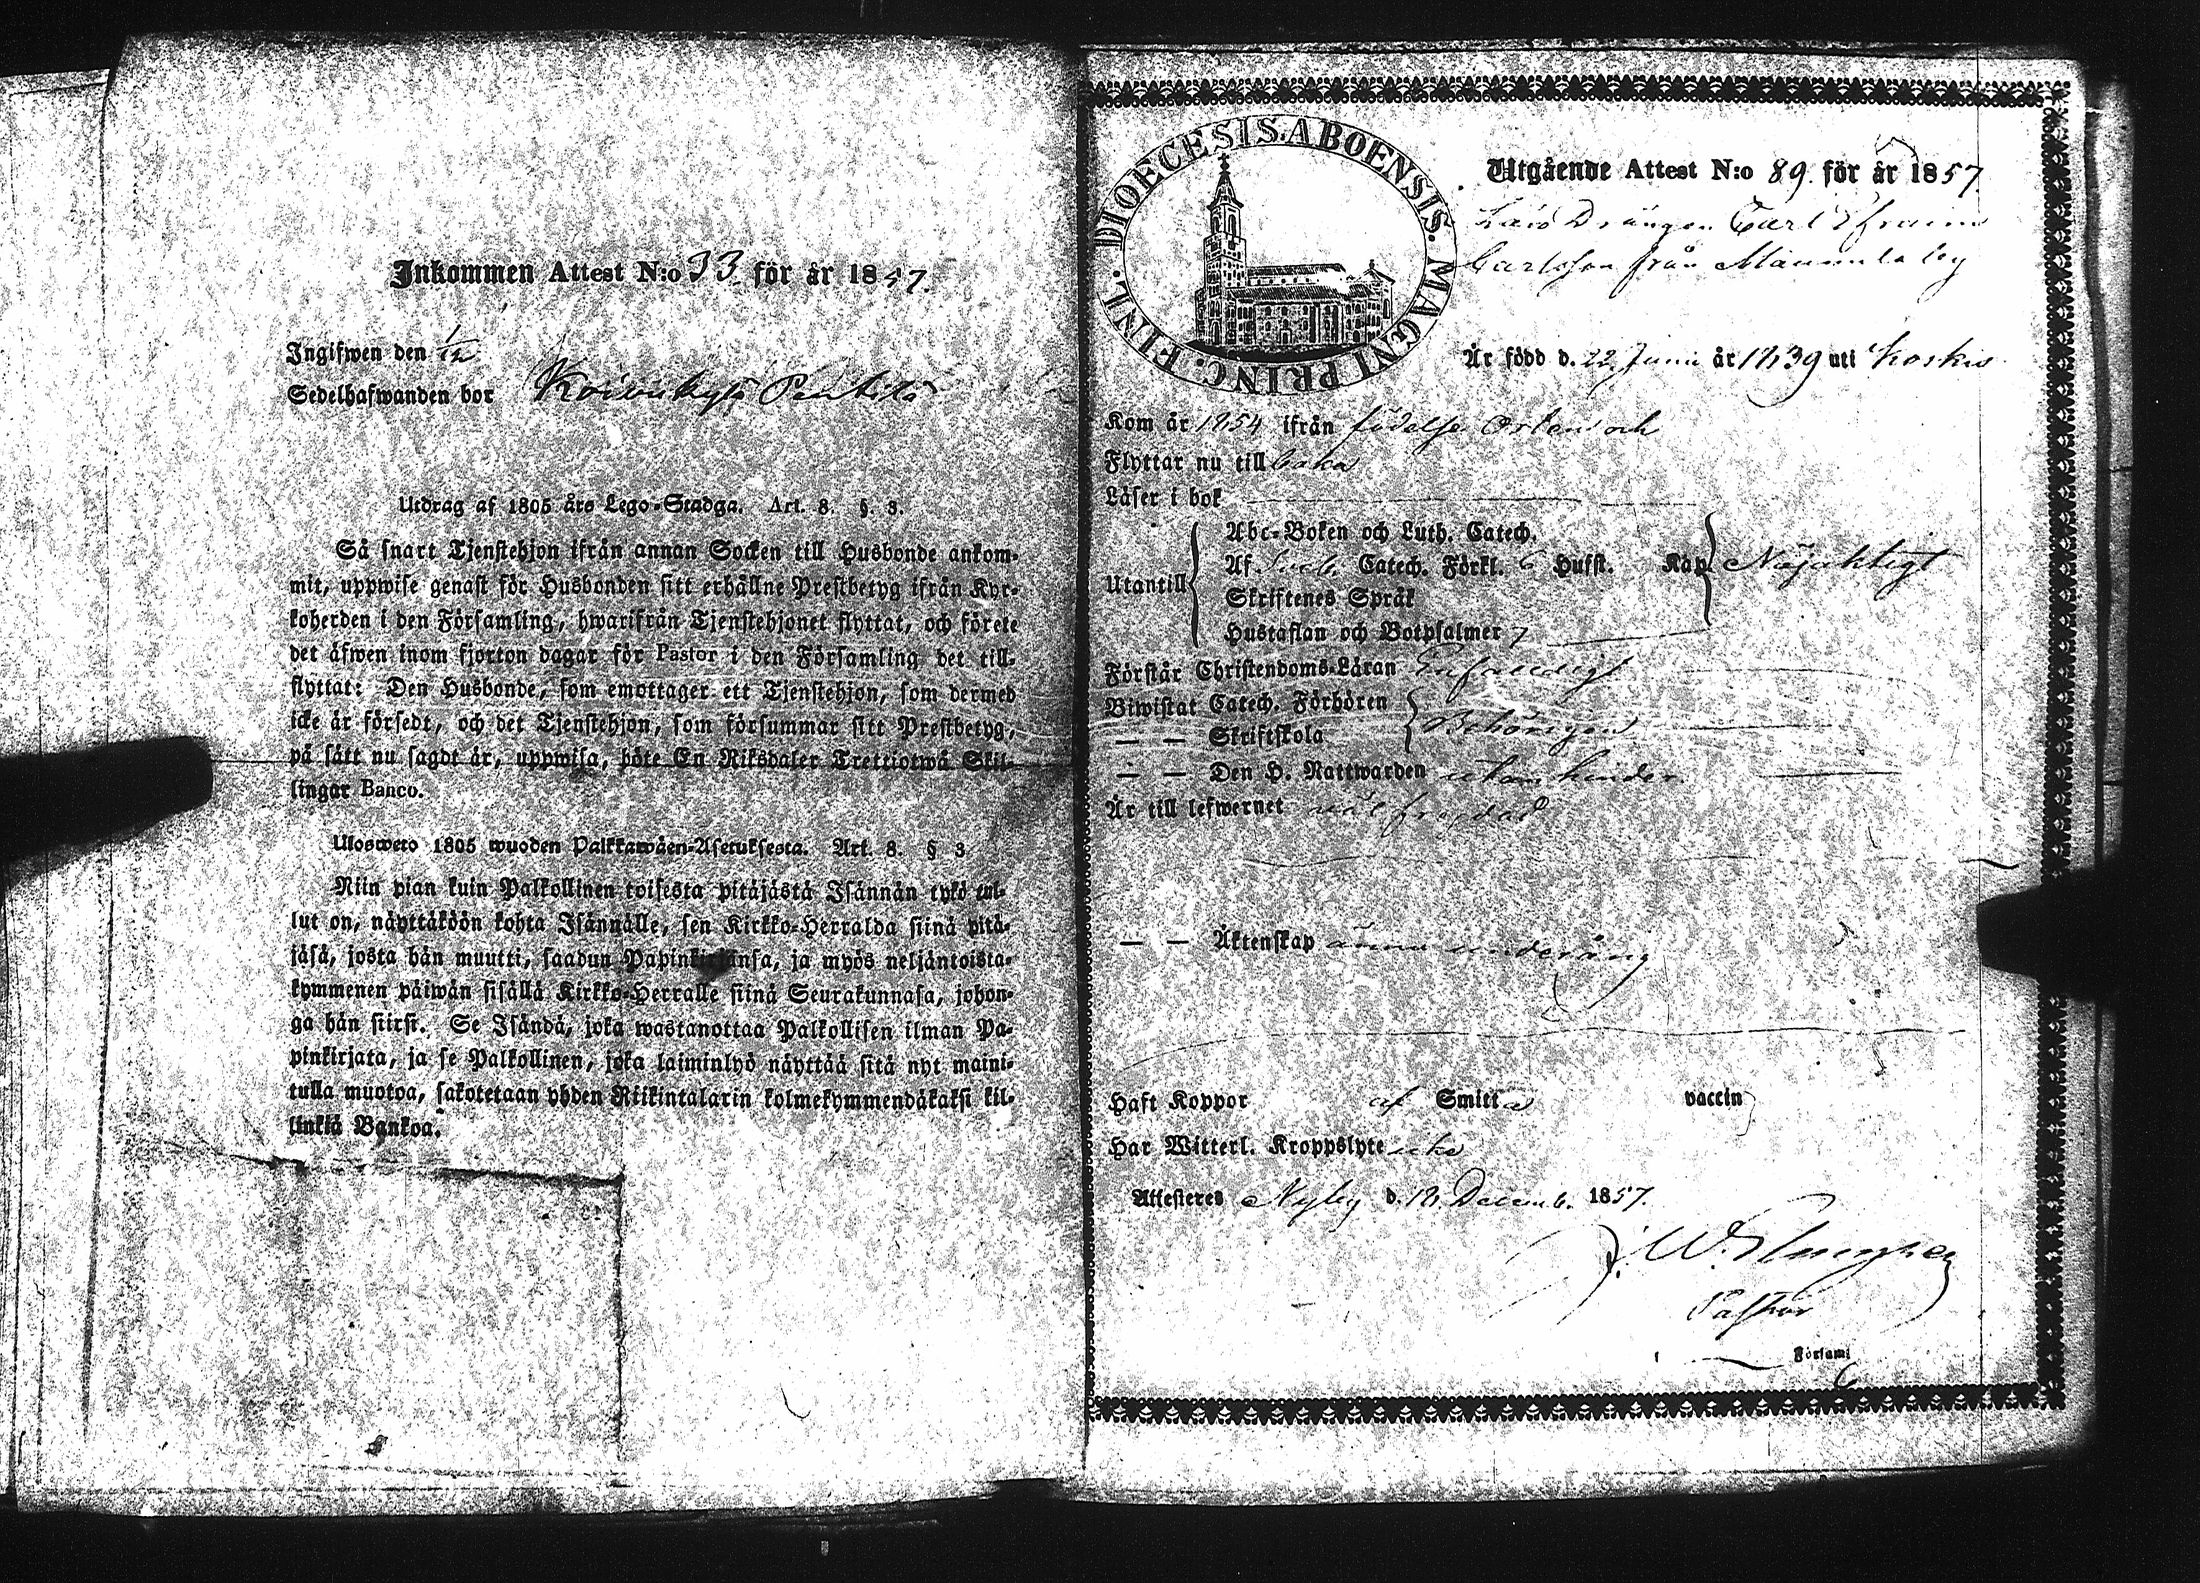 Inkommen Attest N:o 33 för år 1857.
Ingifwen den 1/12
Sedelhafwanden bor Koivukylä Penttilä
Utdrag af 1805 års Lego-Stadga. Art. 8. §. 3.
Så snart Tjenstehjon ifrån annan Socken till Husbonde ankom-
mit, uppwise genast för Husbonden sitt erhållne Prestbetyg ifrån Kyr-
koherden i den Församling, hwarifrån Tjenstehjonet flyttat, och förete
det äfwen inom fjorton dagar för Pastor i den Församling det till-
flyttat: Den Husbonde, som emottager ett Tjenstehjon, som dermed
icke är försedt, och det Tjenstehjon, som försummar sitt Prestbetyg,
på sätt nu sagdt är, uppwisa, böte En Riksdaler Trettiotwå Skil-
lingar Banco.
Ulosweto 1805 wuoden Palkkawäen-Asetuksesta. Art. 8. § 3.
Niin pian kuin Palkollinen toisesta pitäjästä Isännän tykö tul-
lut on, näyttäköön kohta Isännälle, sen Kirkko-Herralda siinä pitä-
jäsä, josta hän muutti, saadun Papinkirjansa, ja myös neljäntoista-
kymmenen päiwän sisällä Kirkko-Herralle siinä Seurakunnasa, johon-
ga hän siirsi. Se Isändä, joka wastanottaa Palkollisen ilman Pa-
pinkirjata, ja se Palkollinen, joka laiminlyö näyttää sitä nyt maini-
tulla muotoa, sakotetaan yhden Riikintalarin kolmekymmendäkaksi kil-
linkiä Bankoa.
DIOECESIS. ABOENSIS. MAGNI PRINC. FINL.
Utgående Attest N:o 89. för år 1857.
Drängen Carl Efraim
Carlsson från Mannula by
Är född d. 22 Junii år 1839 uti Koskis
Kom år 1854 ifrån födelse Orten och
Flyttar nu tillbaka
Läser i bok
Utantill
Abc-Boken och Luth. Catech.
Af Sveb. Catech. Förkl. 6 Hufst. Kap. Nöjaktigt
Skriftenes Språk
Hustaflan och Botpsalmer 7
Förstår Christendoms-Läran Enfaldigt
Biwistat Catech. Förhören
— — Skriftskola Behörigen
— — Den H. Nattwarden utan hinder
Är till lefwernet väl frejdad
— — Äktenskap ännu underårig
Haft Koppor af Smitta vaccin
Har Witterl. Kroppslyte icke
Attesteres Nyby d. 18. Decemb. 1857.
J. W.
Pastor
i Församl